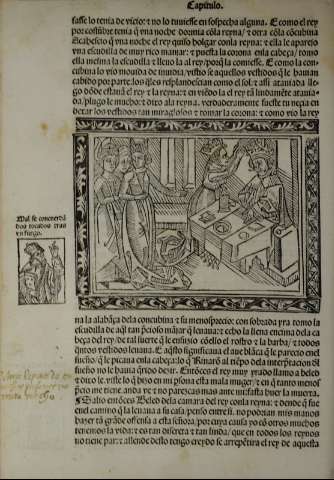 Capitulo.
sasse lo tenia de vicio: τ no lo tuuiesse en sospecha alguna. E como el rey
por costũbre tenia q̃ vna noche dormia cõla reyna / τ otra cõla cõcubina
Acaescio q̃ vna noche el rey quiso holgar conla reyna: τ ella le aparejo
vna escudilla de muy rico manjar: τ puesta la corona enla cabeça / tomo
ella mesma la escudilla τ lleuo la al rey / por q̃ la comiesse. E como la con-
cubina lo vio mouida de inuidia / vistio se aquellos vestidos q̃ le hauian
cabido por parte: los q̃les resplandescian como el sol: τ assi atauiada lle
go dõde estaua el rey τ la reyna: τ en viẽdo la el rey tã
lindamẽte atauia-
da / plugo le mucho: τ dixo ala reyna. verdaderamente fueste tu necia en
dexar los vestidos tan τ tomar la corona: τ como vio la rey
Mal se concuerdã
dos tocados
na la alabãça dela concubina τ su menosprecio: con sobrada yra tomo la
escudilla de aq̃l tan p̃cioso mãjar q̃ leuaua: τ echo la llena encima dela ca
beça del rey / de tal suerte q̃ le ensuzio cõello el rostro τ la barba / τ todos
q̃ntos vestidos leuaua. E aq̃sto significaua el
sueño no le hauia q̃rido dezir. Entõces el rey muy yrado llamo a beled
τ dixo le. viste lo q̃ hizo en mi p̃sona esta mala muger / τ en q̃ tanto menos
p̃cio me tiene anda ve τ no parezcas mas ante mi fasta hauer la muerta.
¶ Salio entõces Beled dela camara del rey conla reyna: τ desde q̃ fue
enel camino q̃ la leuaua a su casa / penso entre si. no podrian mis manos
hazer tã grãde offensa a esta señora / por cuya causa yo τ otros muchos
tenemos la vida: τ es tan discreta τ tan linda / que en todos los reynos
no tiene par: τ allende desto tengo creydo se arrepẽtira el rey de aquesta